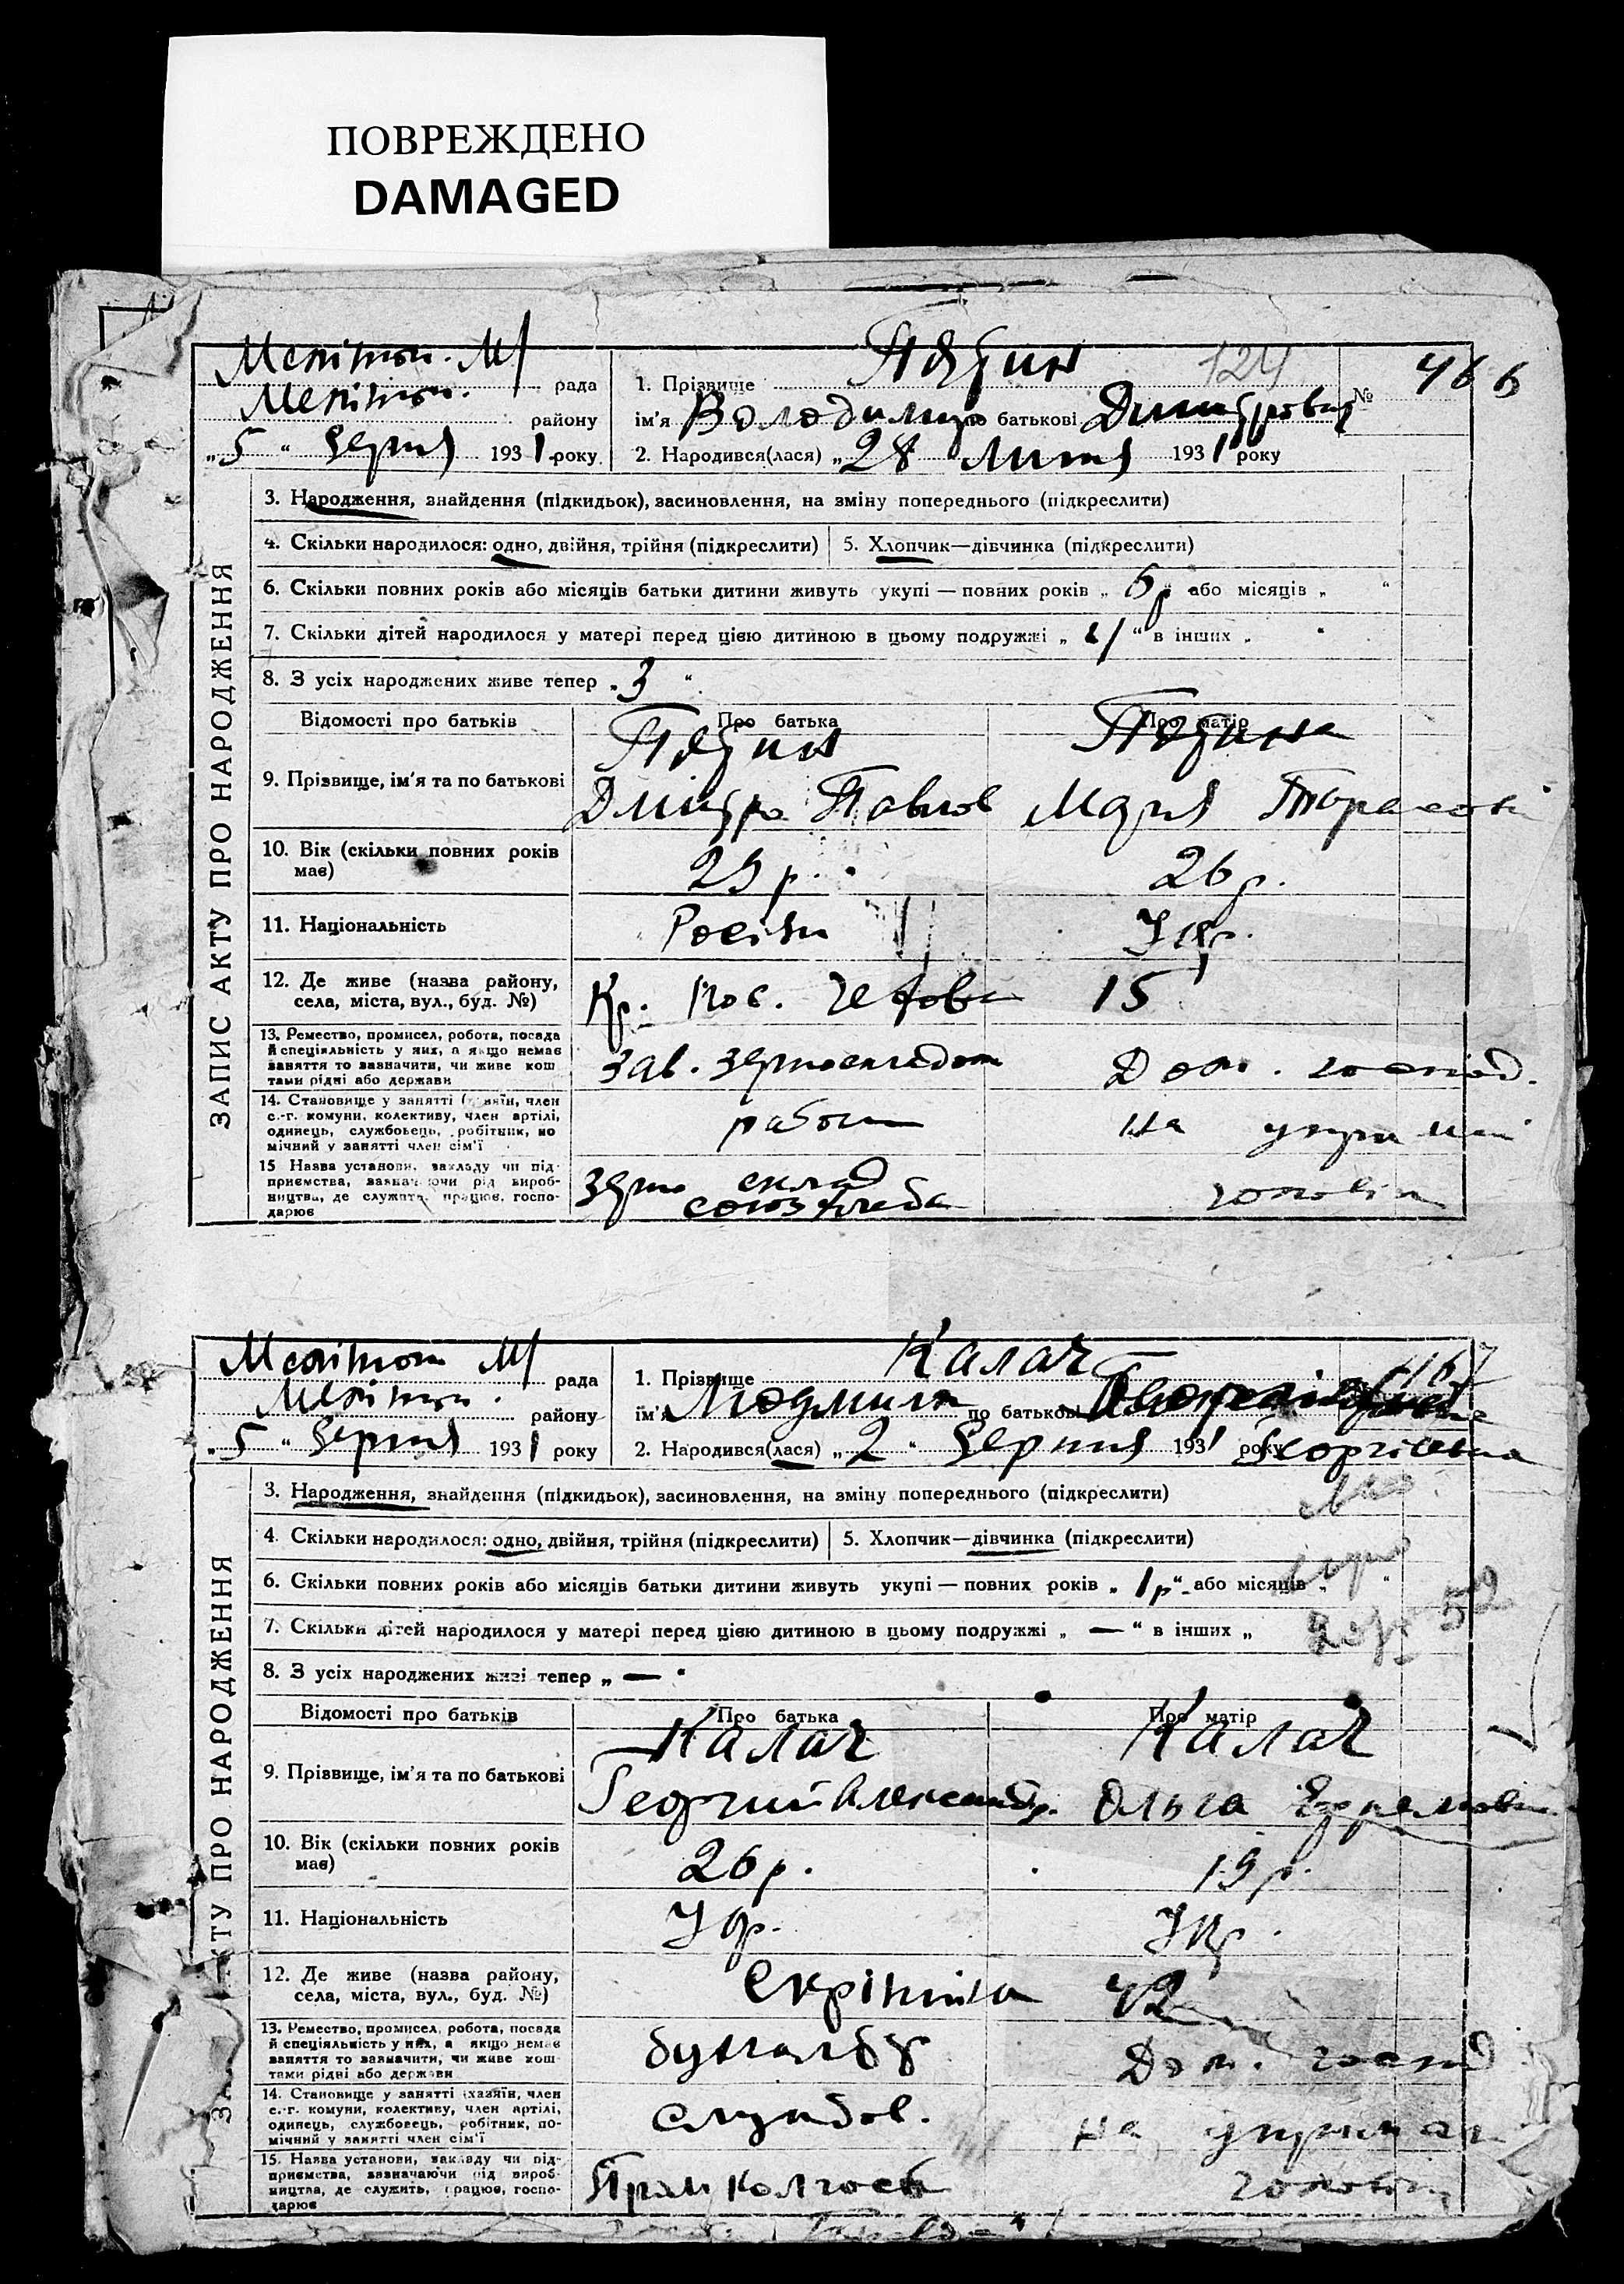 ПОВРЕЖДЕНО
DAMAGED
Мелітоп. М/ рада
Мелітоп. району
„5“ Серпня 1931 року
1. Прізвище 124
ім'я Володимир по батькові Дмитрович
№ 466
2. Народився(лася) „28 Липня 1931 року
ЗАПИС АКТУ ПРО НАРОДЖЕННЯ
3. Народження, знайдення (підкидьок), засиновлення, на зміну попереднього (підкреслити)
4. Скільки народилося: одно, двійня, трійня (підкреслити) 5. Хлопчик—дівчинка (підкреслити)
6. Скільки повних років або місяців батьки дитини живуть укупі — повних років „ 6р або місяців „ “
7. Скільки дітей народилося у матері перед цією дитиною в цьому подружжі „ “ в інших „ “
8. З усіх народжених живе тепер „3 “
Відомості про батьків Про батька Про матір
9. Прізвище, ім'я та по батькові
Дмитро Павлов Марія Тарасові
10. Вік (скільки повних років має) 29 р. 26 р.
11. Національність Росіян Укр.
12. Де живе (назва району, села, міста, вул., буд. №) Кр. пос. 15
13. Ремество, промисел, робота, посада й спеціяльність у них, а якщо немає заняття то зазначити, чи живе коштами рідні або держави Зав. зерноскладом Дом. господ.
14. Становище у занятті (хазяїн, член с.-г. комуни, колективу, член артілі, одинець, службовець, робітник, помічний у занятті член сім'ї работн на утриман
15 Назва установи, закладу чи підприємства, зазначаючи рід виробництва, де служить, працює, господарює зерно склад союзхлеба чоловіка
Мелітоп М/ рада
Мелітоп. району
„5“ Серпня 1931 року
1. Прізвище Калач 467
ім'я Людмила по батькові
2. Народився(лася) „2“ Серпня 1931 року Георгіевна
ПРО НАРОДЖЕННЯ
3. Народження, знайдення (підкидьок), засиновлення, на зміну попереднього (підкреслити)
4. Скільки народилося: одно, двійня, трійня (підкреслити) 5. Хлопчик—дівчинка (підкреслити)
6. Скільки повних років або місяців батьки дитини живуть укупі — повних років „ 1р“ або місяців „ “
7. Скільки дітей народилося у матері перед цією дитиною в цьому подружжі „ — “ в інших „
52
8. З усіх народжених живі тепер „ — “
Відомості про батьків Про батька Про матір
Калач Калач
9. Прізвище, ім'я та по батькові
Георгий Александр. Ольга Ефремовн
10. Вік (скільки повних років має) 26 р. 19 р.
11. Національність Укр. Укр.
12. Де живе (назва району, села, міста, вул., буд. №) 42
13. Ремество, промисел, робота, посада й спеціяльність у них, а якщо немає заняття то зазначити, чи живе коштами рідні або держави бухгалтер Дом. господ
14. Становище у занятті (хазяїн, член с.-г. комуни, колективу, член артілі, одинець, службовець, робітник, помічний у занятті член сім'ї службов. на утриман
15. Назва установи, закладу чи підприємства, зазначаючи рід виробництва, де служить, працює, господарює чоловіка